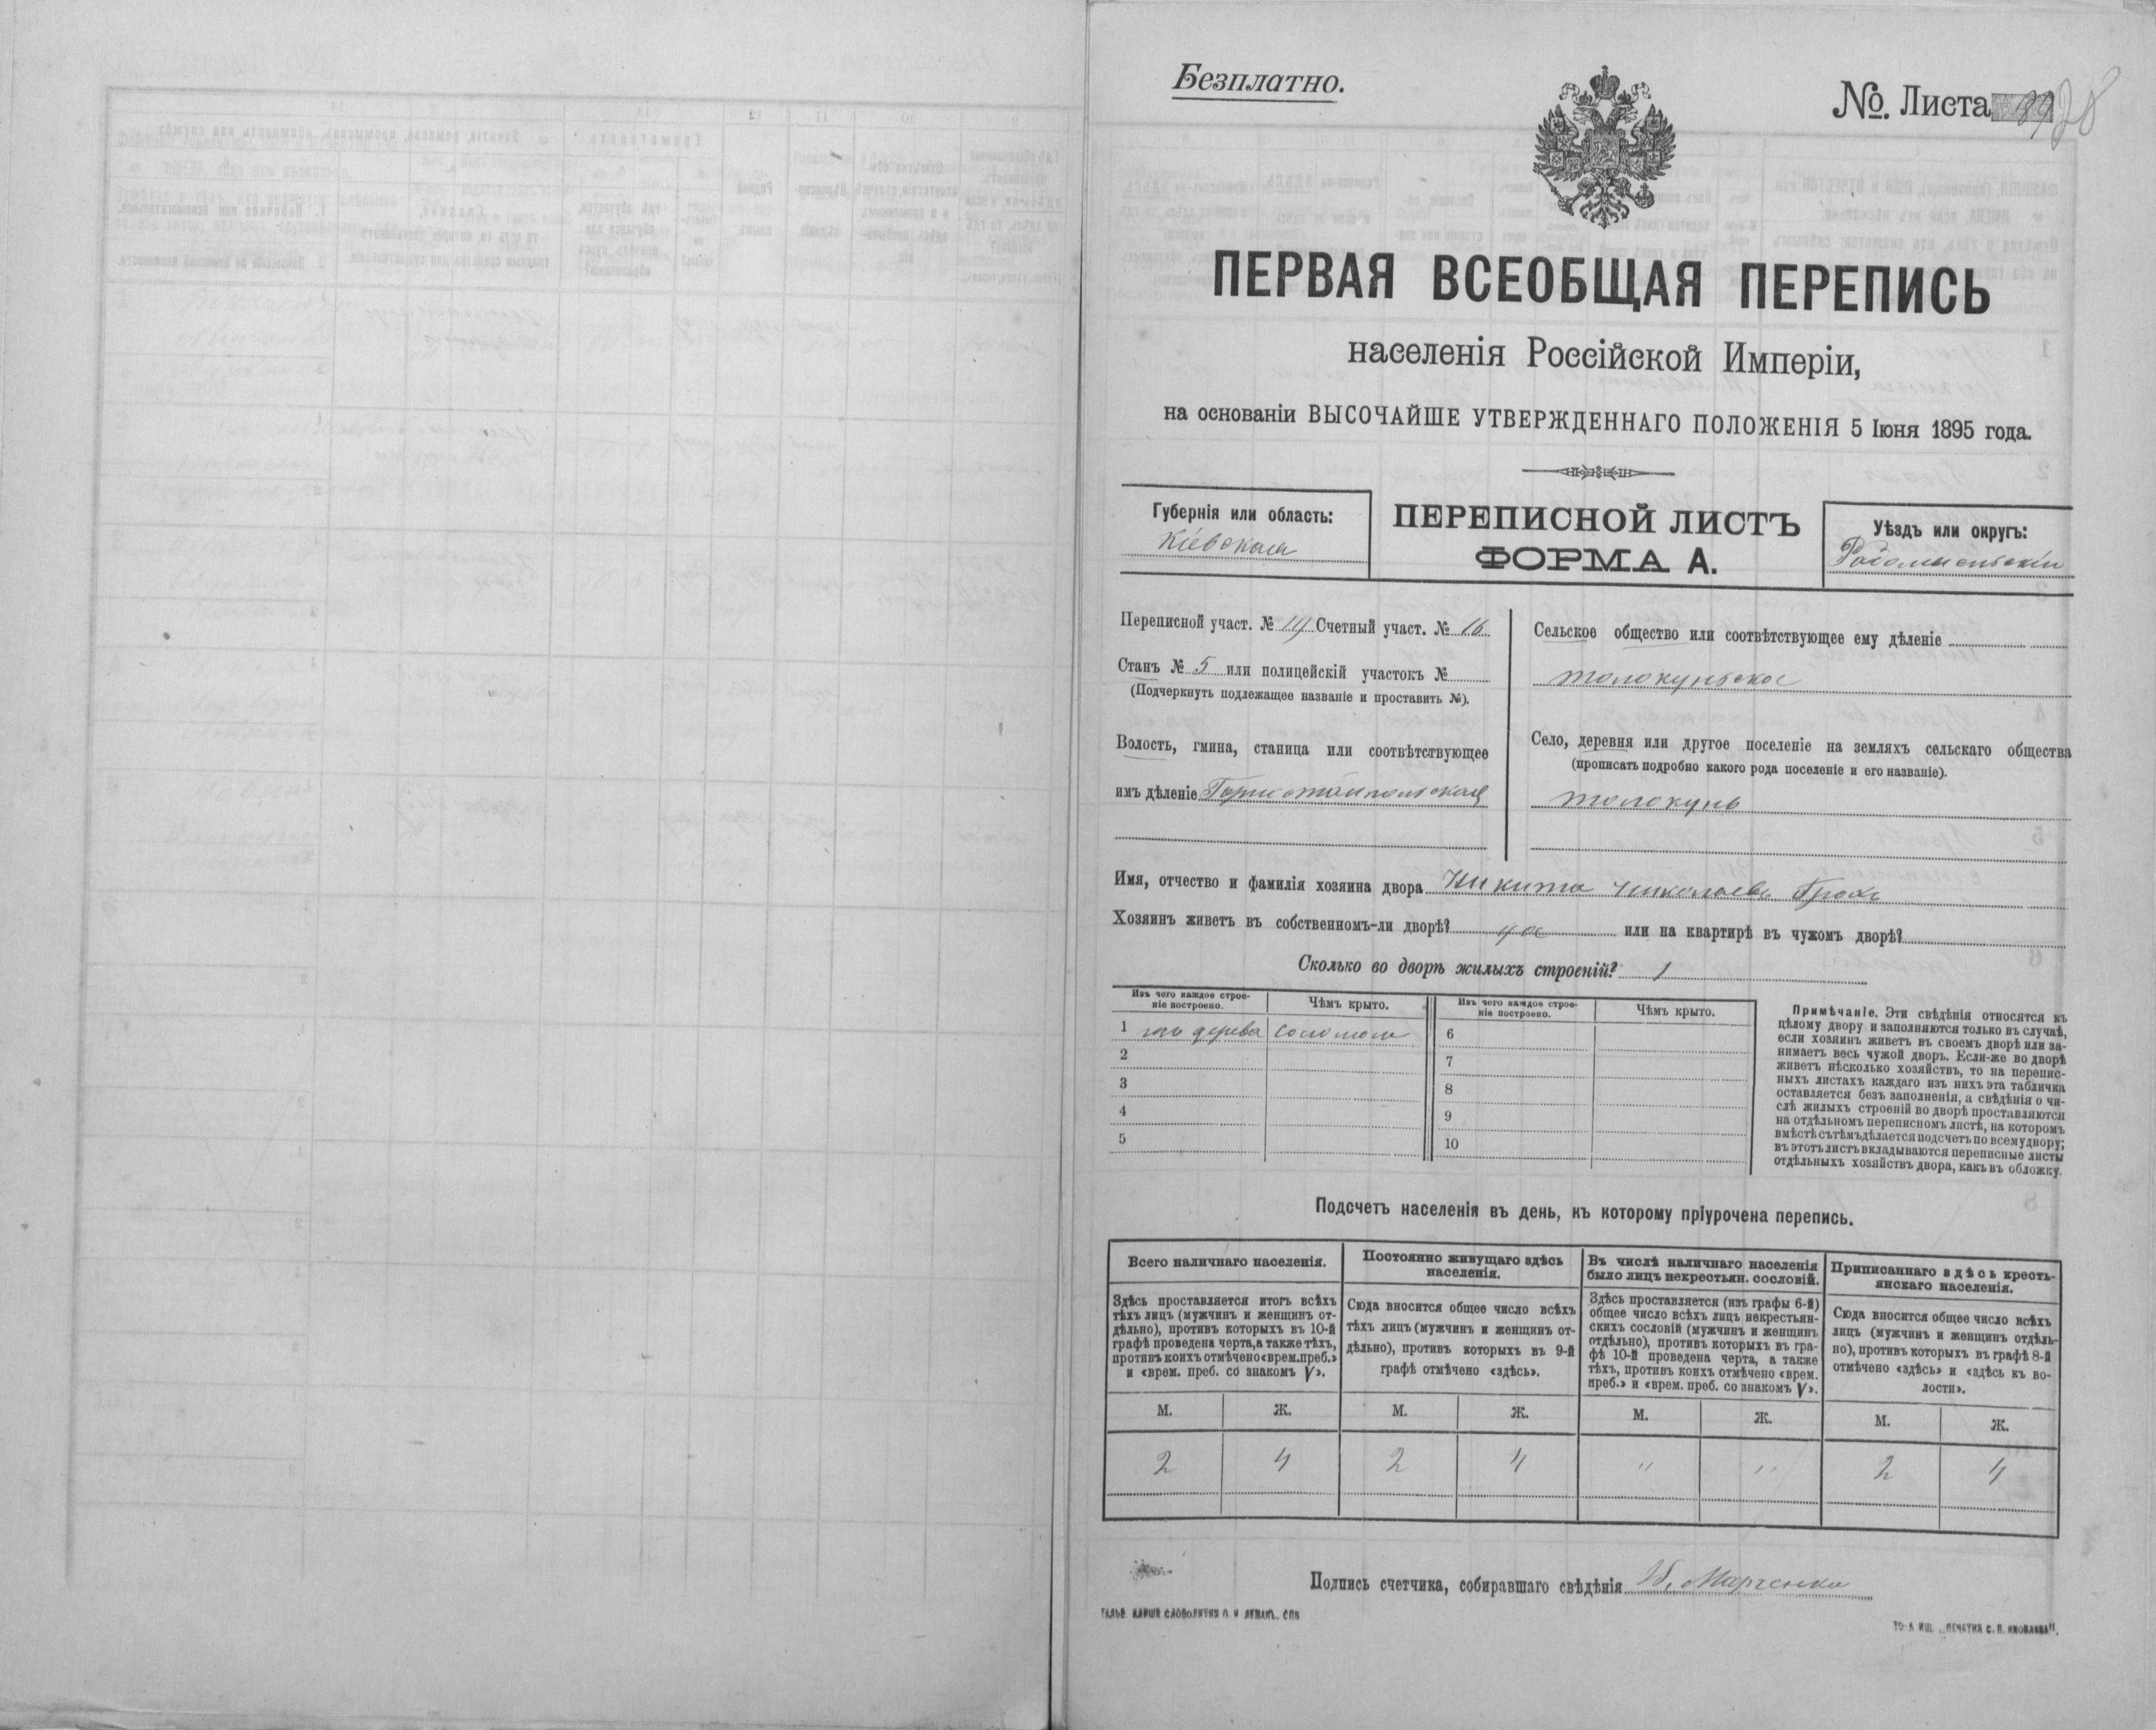 Безплатно.
№. Листа
ПЕРВАЯ ВСЕОБЩАЯ ПЕРЕПИСЬ
населенія Россійской Имперіи,
на основаніи ВЫСОЧАЙШЕ УТВЕРЖДЕННАГО ПОЛОЖЕНІЯ 5 Іюня 1895 года.
Губернія или область:
Кіевская
ПЕРЕПИСНОЙ ЛИСТЪ
ФОРМА А.
Уѣздъ или округъ:
Радомысльскій
Переписной участ. № 14 Счетный участ. № 16
Станъ № 5 или полицейскій участокъ №
(Подчеркнуть подлежащее названіе и проставить №).
Волость, гмина, станица или соотвѣтствующее
имъ дѣленіе Горностайпольская
Сельское общество или соотвѣтствующее ему дѣленіе
толокуньское
Село, деревня или другое поселеніе на земляхъ сельскаго общества
(прописать подробно какого рода поселеніе и его названіе).
толокунь
Имя, отчество и фамилія хозяина двора Никита Николаевъ
Хозяинъ живетъ въ собственномъ-ли дворѣ? или на квартирѣ въ чужомъ дворѣ?
Сколько во дворѣ жилыхъ строеній? 1
Изъ чего каждое строе-
ніе построено.
Чѣмъ крыто.
Изъ чего каждое строе-
ніе построено.
Чѣмъ крыто.
1 изъ дерева соломой 6
2 7
3 8
4 9
5 10
Примѣчаніе. Эти свѣдѣнія относятся къ
цѣлому двору и заполняются только въ случаѣ,
если хозяинъ живетъ въ своемъ дворѣ или за-
нимаетъ весь чужой дворъ. Если-же во дворѣ
живетъ нѣсколько хозяйствъ, то на перепис-
ныхъ листахъ каждаго изъ нихъ эта табличка
оставляется безъ заполненія, а свѣдѣнія о чи-
слѣ жилыхъ строеній во дворѣ проставляются
на отдѣльномъ переписномъ листѣ, на которомъ
вмѣстѣ съ тѣмъ дѣлается подсчетъ по всему двору;
въ этотъ листъ вкладываются переписные листы
отдѣльныхъ хозяйствъ двора, какъ въ обложку.
Подсчетъ населенія въ день, къ которому пріурочена перепись.
Всего наличнаго населенія.
Здѣсь проставляется итогъ всѣхъ
тѣхъ лицъ (мужчинъ и женщинъ от-
дѣльно), противъ которыхъ въ 10-й
графѣ проведена черта, а также тѣхъ,
противъ коихъ отмѣчено «врем. преб.»
и «врем. преб. со знакомъ V».
Постоянно живущаго здѣсь
населенія.
Сюда вносится общее число всѣхъ
тѣхъ лицъ (мужчинъ и женщинъ от-
дѣльно), противъ которыхъ въ 9-й
графѣ отмѣчено «здѣсь».
Въ числѣ наличнаго населенія
было лицъ некрестьян. сословій.
Здѣсь проставляется (изъ графы 6-й)
общее число всѣхъ лицъ некрестьян-
скихъ сословій (мужчинъ и женщинъ
отдѣльно), противъ которыхъ въ гра-
фѣ 10-й проведена черта, а также
тѣхъ, противъ коихъ отмѣчено «врем.
преб.» и «врем. преб. со знакомъ V».
Приписаннаго здѣсь кресть-
янскаго населенія.
Сюда вносится общее число всѣхъ
лицъ (мужчинъ и женщинъ отдѣль-
но), противъ которыхъ въ графѣ 8-й
отмѣчено «здѣсь» и «здѣсь къ во-
лости».
М. Ж. М. Ж. М. Ж. М. Ж.
2 4 2 4 " " 2 4
Подпись счетчика, собиравшаго свѣдѣнія Марченко